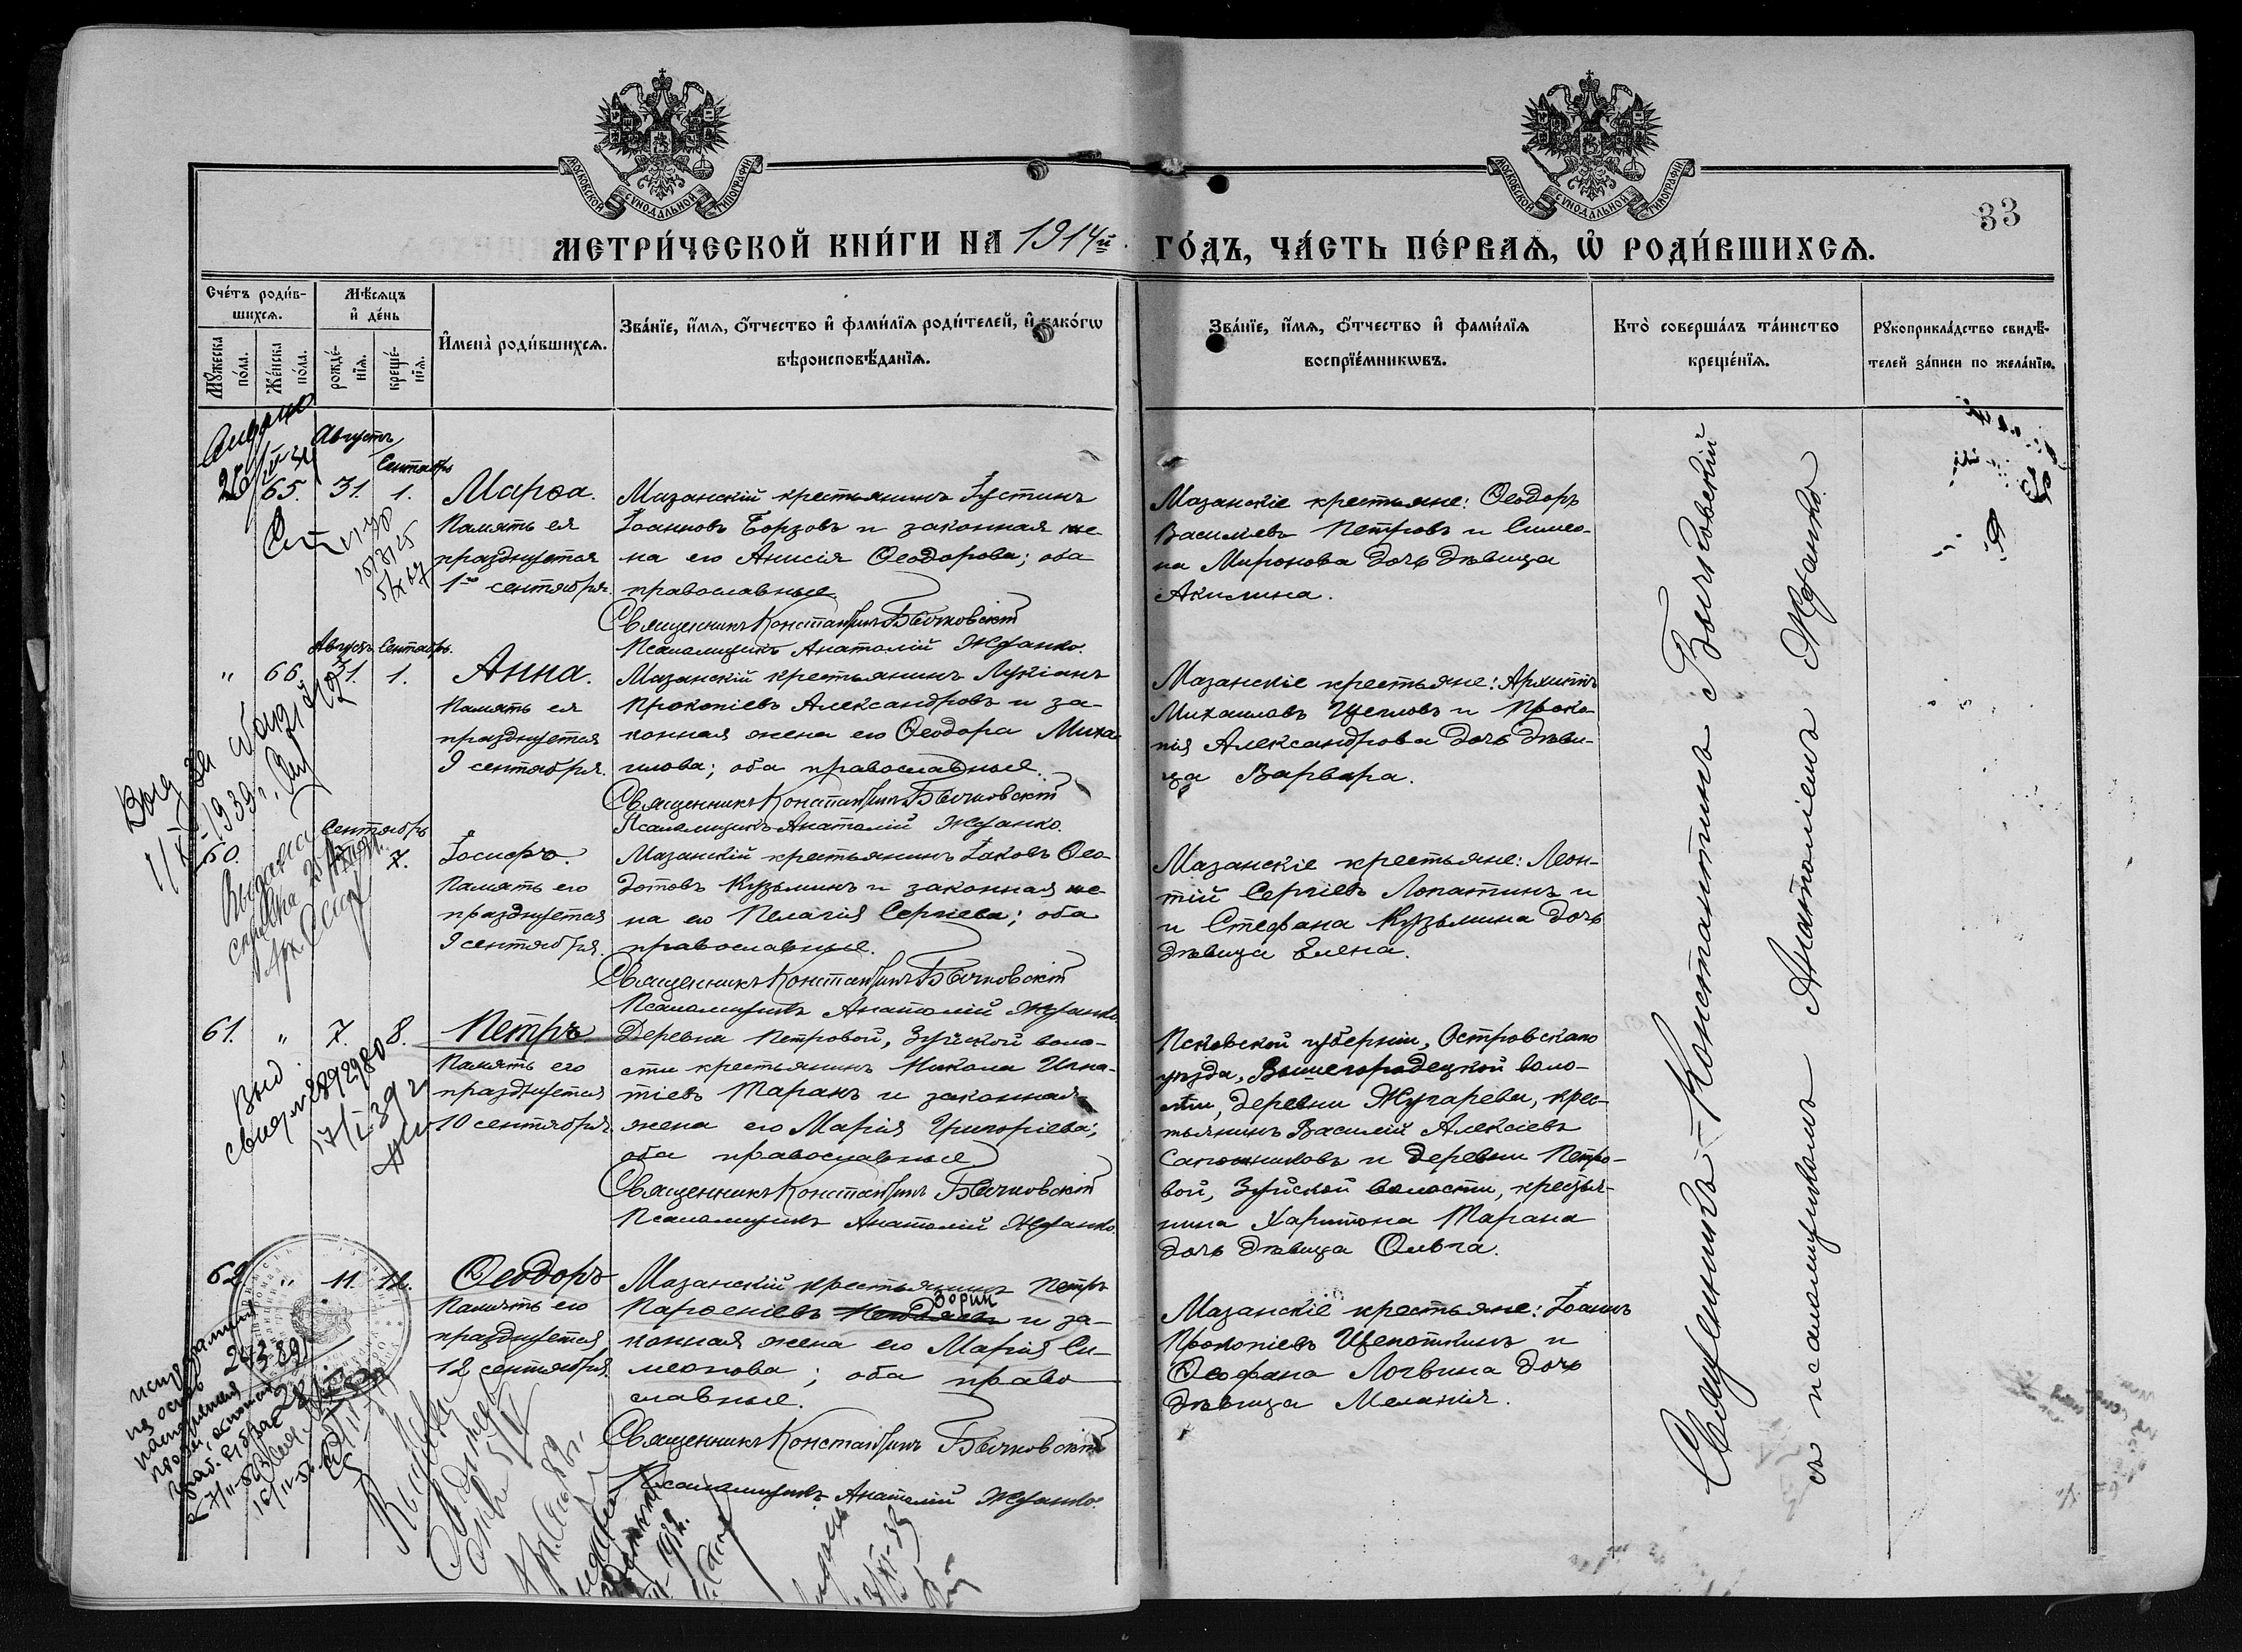 МОСКОВСКОЙ СѴНОДАЛЬНОЙ ТИПОГРАФІИ
МОСКОВСКОЙ СѴНОДАЛЬНОЙ ТИПОГРАФІИ
33
МЕТРИ́ЧЕСКОЙ КНИ́ГИ НА 1914й
ГО́ДЪ, ЧА́СТЬ ПЕ́РВАѦ, Ѡ РОДИ́ВШИХСѦ.
Сче́тъ роди́в-
шихсѧ.
Мѣ́сѧцъ
и҆ де́нь
Мꙋжеска по́ла.
Же́нска по́ла.
рожде́-
нїѧ.
креще́-
нїѧ.
И҆мена̀ роди́вшихсѧ.
Зва́нїе, и҆́мѧ, ѻ҆́тчество и҆ фами́лїѧ роди́телей, и҆ како́гѡ
вѣроисповѣ́данїѧ.
Зва́нїе, и҆́мѧ, ѻ҆́тчество и҆ фами́лїѧ
воспрїе́мникѡвъ.
Кто̀ соверша́лъ та́инство
креще́нїѧ.
Рꙋкоприкла́дство свидѣ́-
телей за́писи по жела́нїю.
Августъ
Сентябрь
65. 31. 1.
Марѳа.
Память ея
празднуется
1го сентября.
Мазанскій крестьянинъ Іустинъ
Іоанновъ Борзовъ и законная же-
на его Анисія Ѳеодорова; оба
православные.
Священникъ Константинъ Бычковскій
Псаломщикъ Анатолій Жданко.
Мазанскіе крестьяне: Ѳеодоръ
Васильевъ Петровъ и Симео-
на Миронова дочь дѣвица
Акилина.
Августъ Сентябрь.
" 66. 31. 1.
Анна.
Память ея
празднуется
9 сентября.
Мазанскій крестьянинъ Лукіанъ
Прокопіевъ Александровъ и за-
конная жена его Ѳеодора Миха-
илова; оба православные.
Священникъ Константинъ Бычковскій
Псаломщикъ Анатолій Жданко.
Мазанскіе крестьяне: Архиппъ
Михаиловъ Щегловъ и Проко-
пія Александрова дочь дѣви-
ца Варвара.
Сентябрь
60. 7.
Іосифъ.
Память его
празднуется
9 сентября.
Мазанскій крестьянинъ Іаковъ Ѳео-
дотовъ Кузьминъ и законная же-
на его Пелагія Сергіева; оба
православные.
Священникъ Константинъ Бычковскій
Псаломщикъ Анатолій Жданко.
Мазанскіе крестьяне: Леон-
тій Сергіевъ Лопатинъ и
и Стефана Кузьмина дочь
дѣвица Елена.
61. " 7. 8.
Петръ
Память его
празднуется
10 сентября.
Деревни Петровой, Зуйской воло-
сти крестьянинъ Никола Игна-
тіевъ Таранъ и законная
жена его Марія Григоріева;
оба православные
Священникъ Константинъ Бычковскій
Псаломщикъ Анатолій Жданко.
Псковской губерніи, Островскаго
уѣзда, Вышегородецкой воло-
сти, деревни Жугарева, крес-
тьянинъ Василій Алексіевъ
Сапожниковъ и деревни Петро-
вой, Зуйской волости, крестья-
нина Харитона Тарана
дочь дѣвица Ольга.
62. " 11. 12.
Ѳеодоръ
Память его
празднуется
12 сентября.
Мазанскій крестьянинъ Петръ
Зорин
Парѳеніевъ и за-
конная жена его Марія Си-
меонова; оба право
славные.
Священникъ Константинъ Бычковскій
Псаломщикъ Анатолій Жданко.
Мазанскіе крестьяне: Іоаннъ
Прокопіевъ Щепоткинъ и
Ѳеофана Логвина дочь
дѣвица Меланія.
Священникъ Константинъ Бычковскій
съ псаломщикомъ Анатоліемъ Жданко.